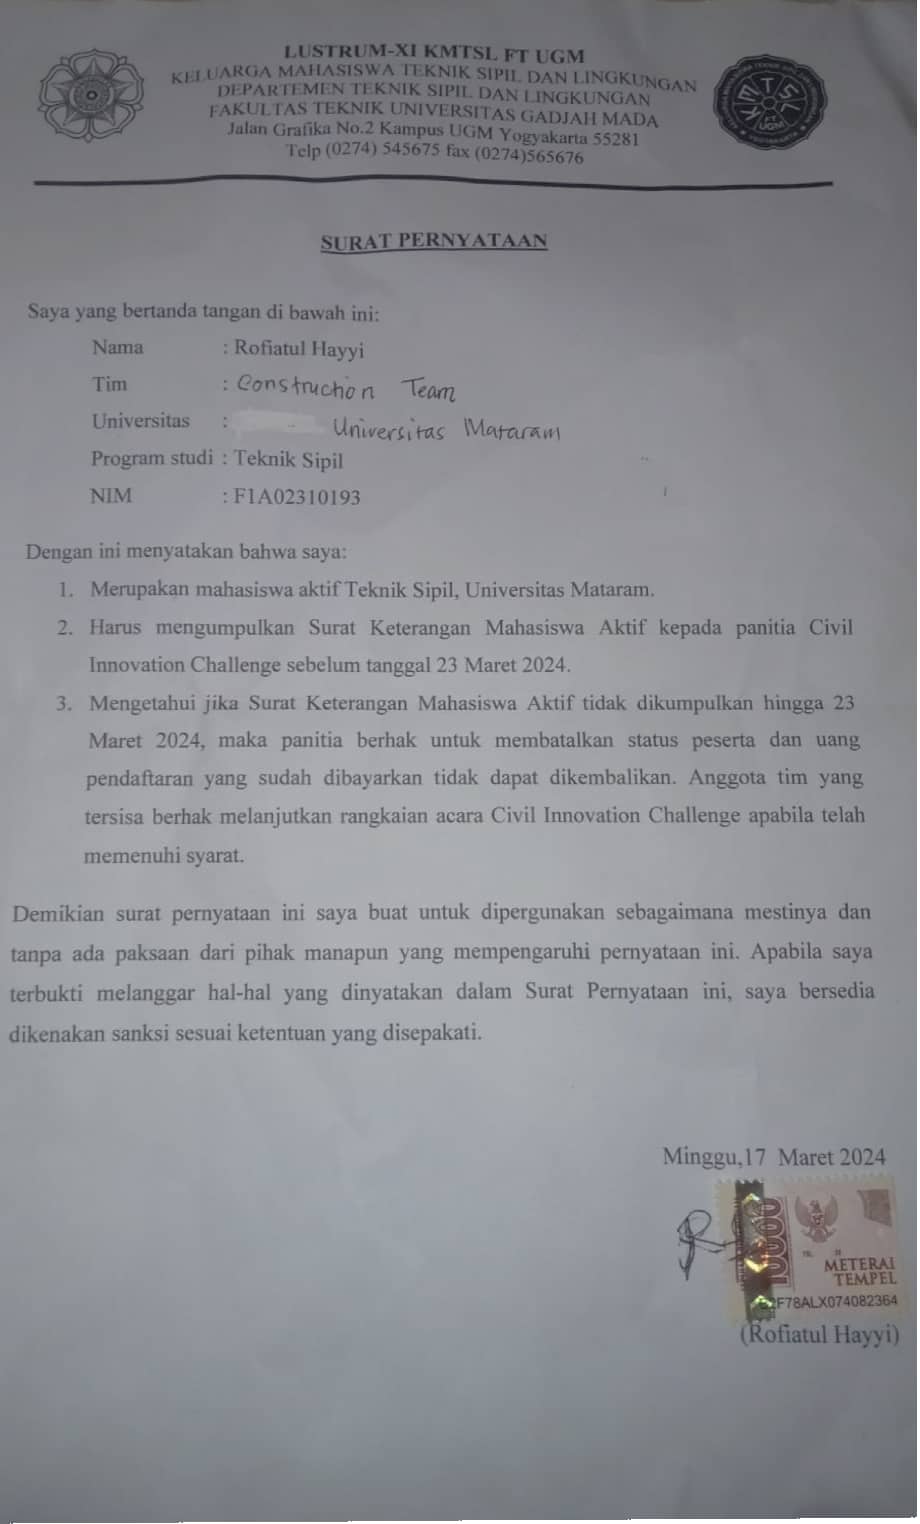 LUSTRUM-XI KMTSL FT UGM
KELUARGA MAHASISWA TEKNIK SIPIL DAN LINGKUNGAN
DEPARTEMEN TEKNIK SIPIL DAN LINGKUNGAN
FAKULTAS TEKNIK UNIVERSITAS GADJAH MADA
Jalan Grafika No.2 Kampus UGM Yogyakarta 55281
Telp (0274) 545675 fax (0274)565676
KMTSL
FT
UGM
SURAT PERNYATAAN
Saya yang bertanda tangan di bawah ini:
Nama : Rofiatul Hayyi
Tim : Construction Team
Universitas : Universitas Mataram
Program studi : Teknik Sipil
NIM : F1A02310193
Dengan ini menyatakan bahwa saya:
1. Merupakan mahasiswa aktif Teknik Sipil, Universitas Mataram.
2. Harus mengumpulkan Surat Keterangan Mahasiswa Aktif kepada panitia Civil
Innovation Challenge sebelum tanggal 23 Maret 2024.
3. Mengetahui jika Surat Keterangan Mahasiswa Aktif tidak dikumpulkan hingga 23
Maret 2024, maka panitia berhak untuk membatalkan status peserta dan uang
pendaftaran yang sudah dibayarkan tidak dapat dikembalikan. Anggota tim yang
tersisa berhak melanjutkan rangkaian acara Civil Innovation Challenge apabila telah
memenuhi syarat.
Demikian surat pernyataan ini saya buat untuk dipergunakan sebagaimana mestinya dan
tanpa ada paksaan dari pihak manapun yang mempengaruhi pernyataan ini. Apabila saya
terbukti melanggar hal-hal yang dinyatakan dalam Surat Pernyataan ini, saya bersedia
dikenakan sanksi sesuai ketentuan yang disepakati.
Minggu,17 Maret 2024
10000
METERAI
TEMPEL
F78ALX074082364
(Rofiatul Hayyi)